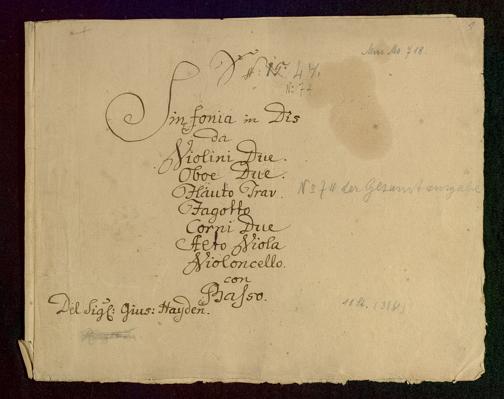 Mus. Ms. 718
N: 15. 47.
No 77
Sinfonia in Dis
da
Violini Due.
Oboe Due.
Flauto Trav.
Fagotto
Corni Due
Alto Viola
Violoncello.
con
Basso.
Del Sigl: Gius: Hayden.
No 74 der Gesamtausgabe